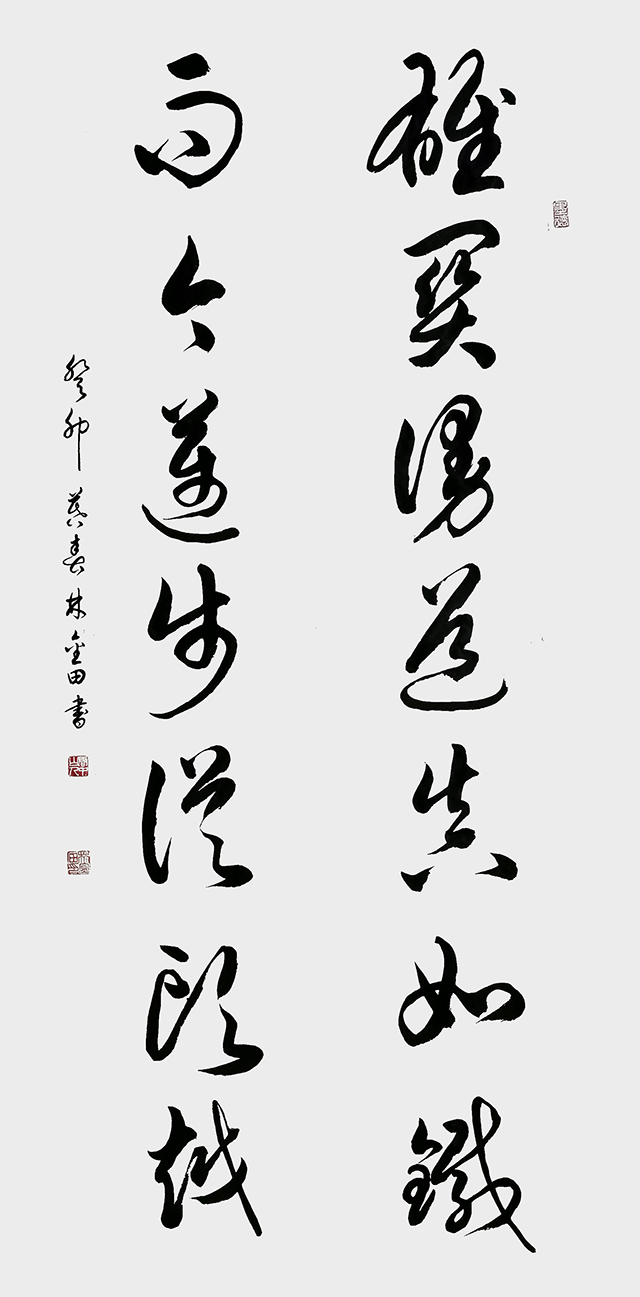 雄關漫道真如鐵
而今邁步從頭越
癸卯暮春林金田書